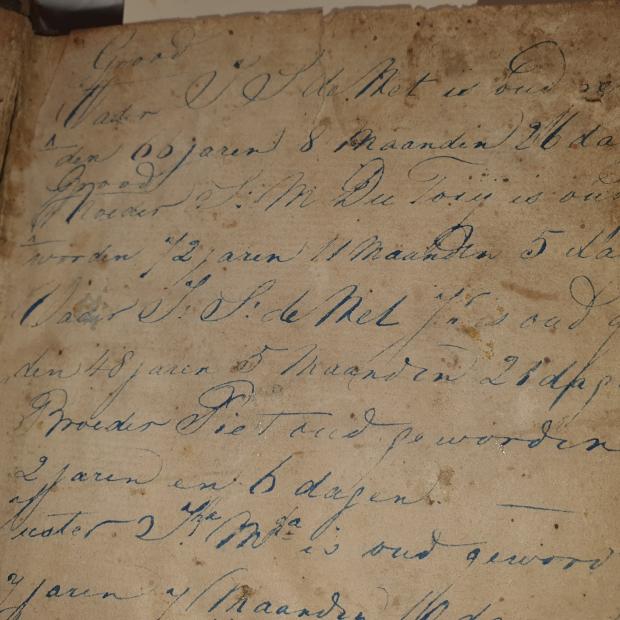 Grood
Vader J S de Wet is oud
den 66 jaren 8 Maanden 26 da
Grood
Moeder S: M Du Toii is oud
worden 72 jaren 11 Maanden 5 da
Vader J. S: de Wet Jr is oud g
den 48 jaren 5 Maanden 21 dag
Broeder Piet oud geworden
2 jaren en 6 dagen
Suster 2 is oud geword
7 jaren 7 Maanden 10 da